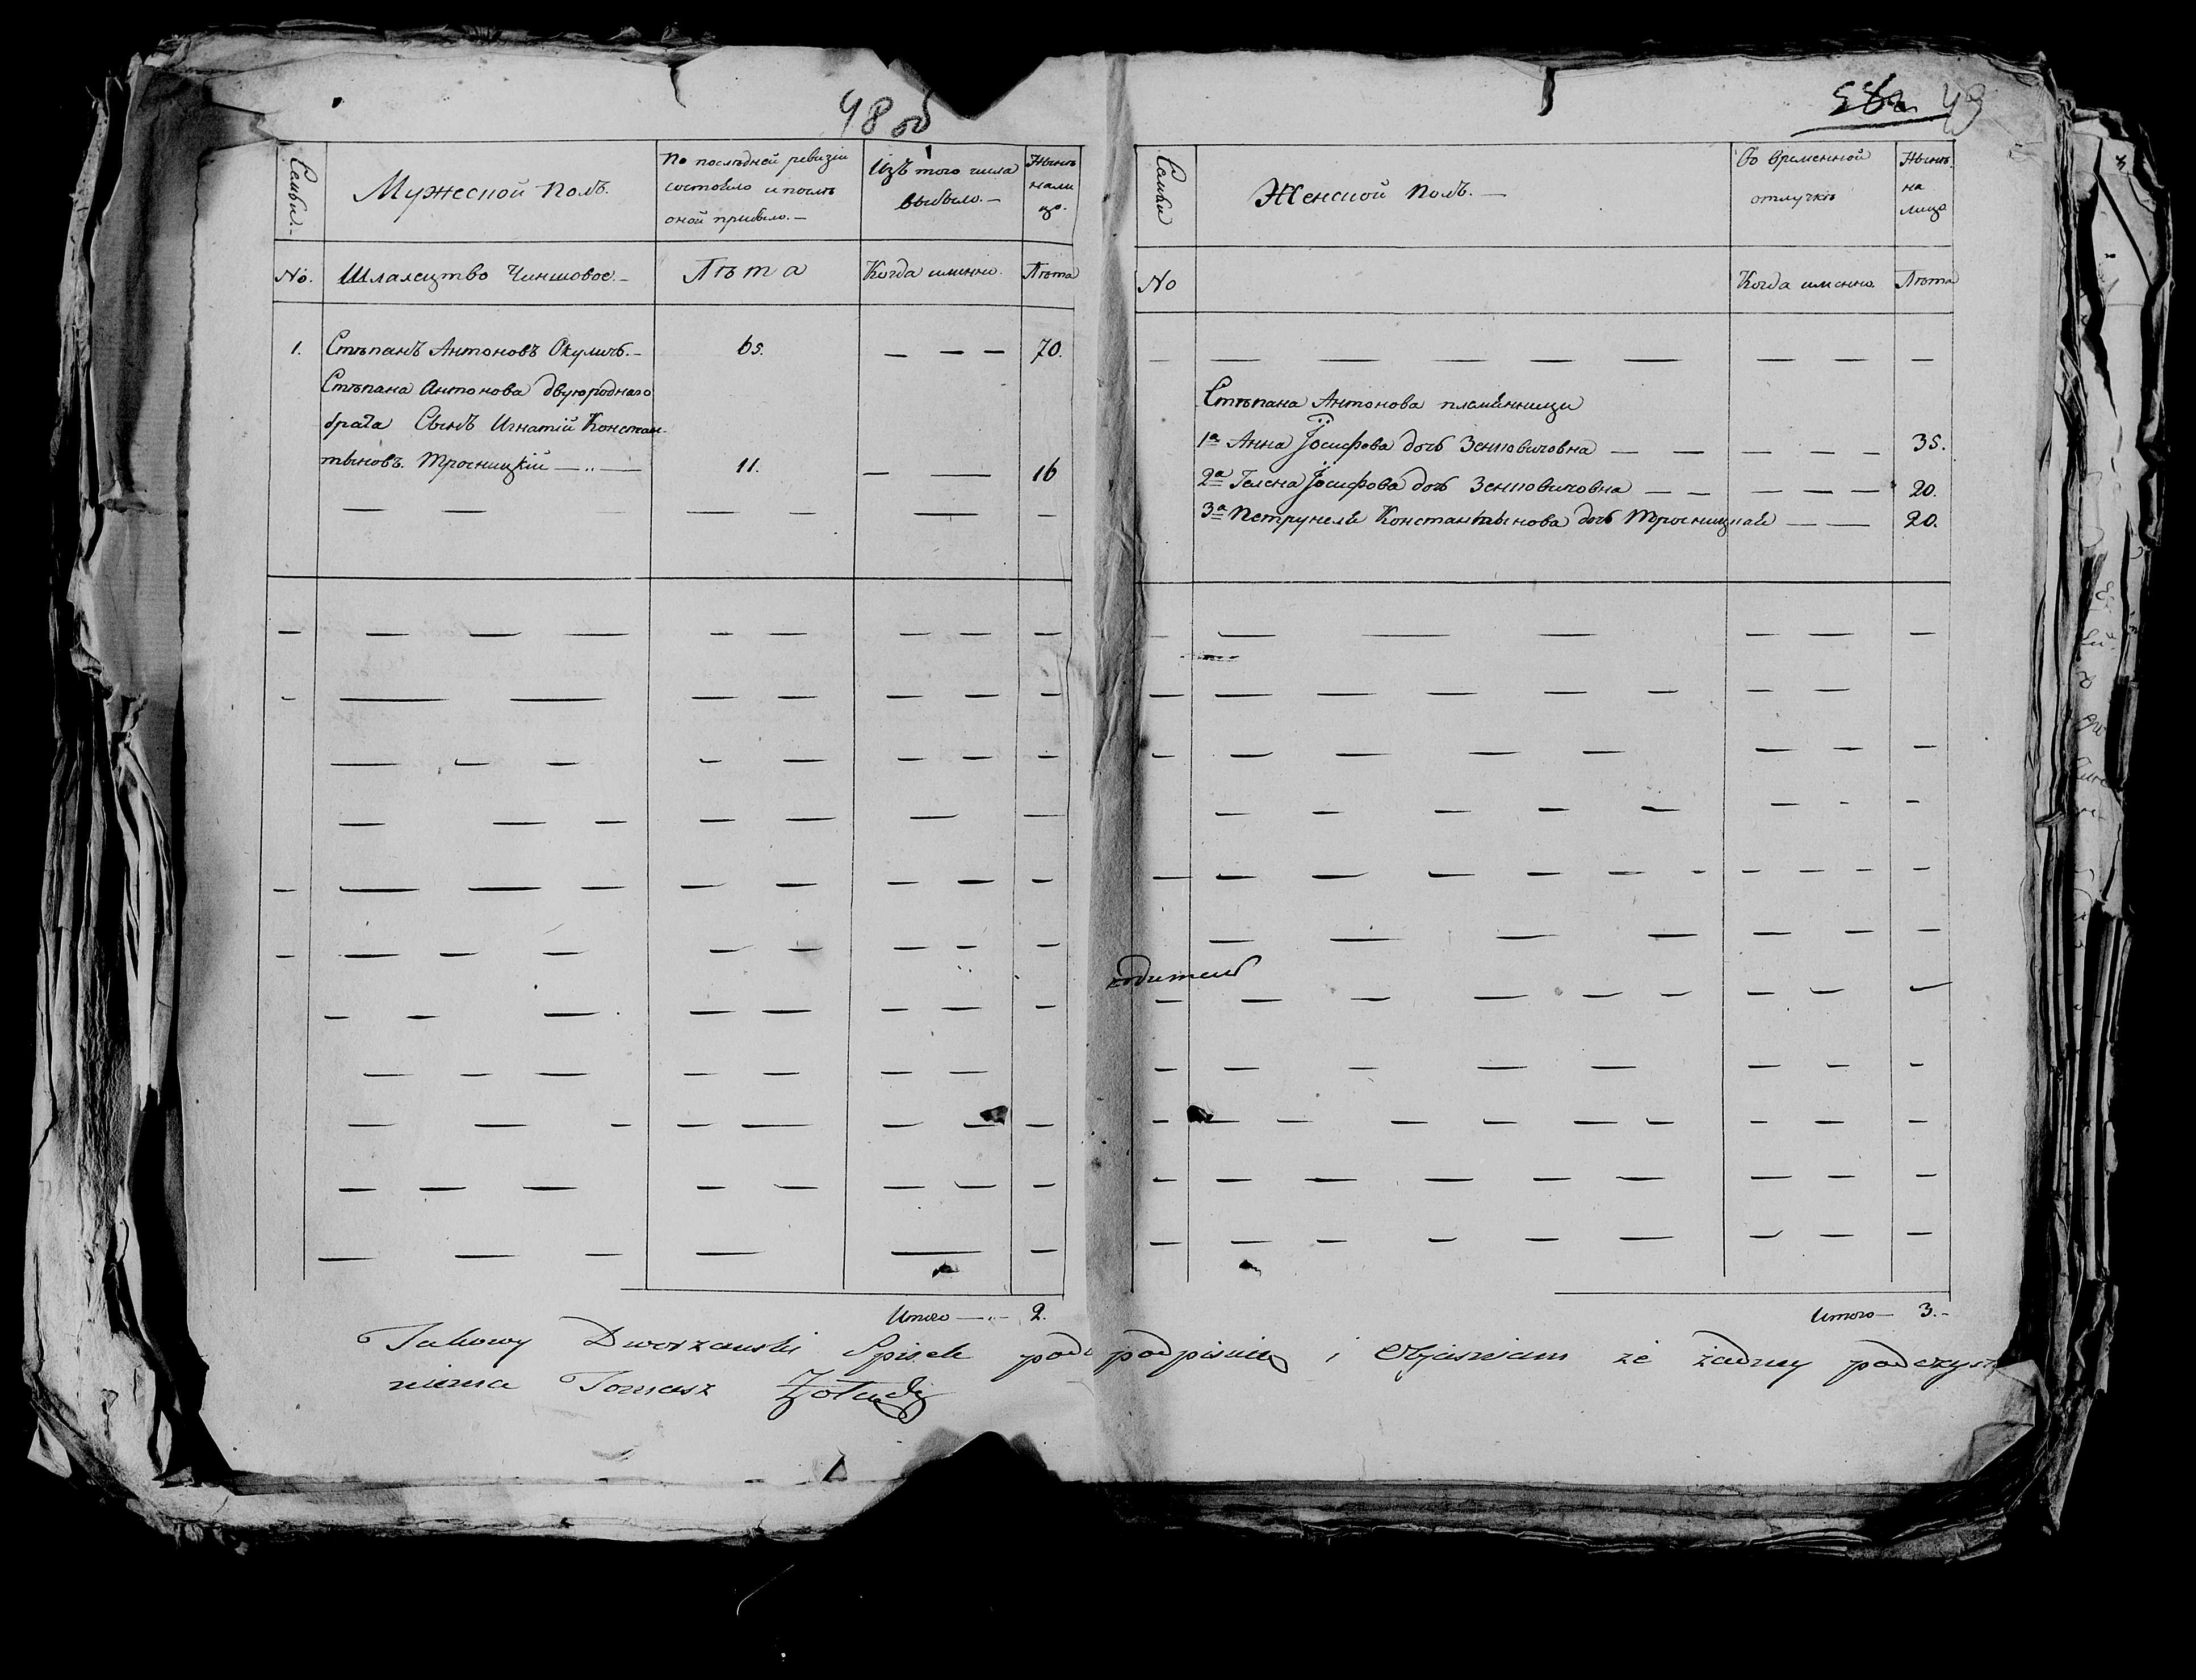 48 об
49
Семьи.
Мужеской Полъ.
По послѣдней ревизіи
состояло и послѣ
оной прибыло.
Изъ того числа
выбыло.
Нынѣ
нали
цо.
No.
Шляхецтво Чиншовое.
Лѣта
Когда именно.
Лѣта
1.
Стѣпанъ Антоновъ Окуличъ.
65.
70.
Стѣпана Антонова двуюроднаго
брата Сынъ Игнатій Констан-
тыновъ. Тросницкій
11.
16
Итого 2.
Семьи
Женской Полъ.
Во временной
отлучкѣ
Нынѣ
на
лицо
No
Когда именно.
Лѣта
Стѣпана Антонова племянницы
1а Анна Іосифова дочь Зенковичовна 35.
2а Гелена Іосифова дочь Зенковичовна 20.
3а Петрунеля Константынова дочь Тросницкая 20.
Итого 3.
Takowy Dworzanski Spisek podpisuię i Objasniam że żadney podczyst
niema Tomasz